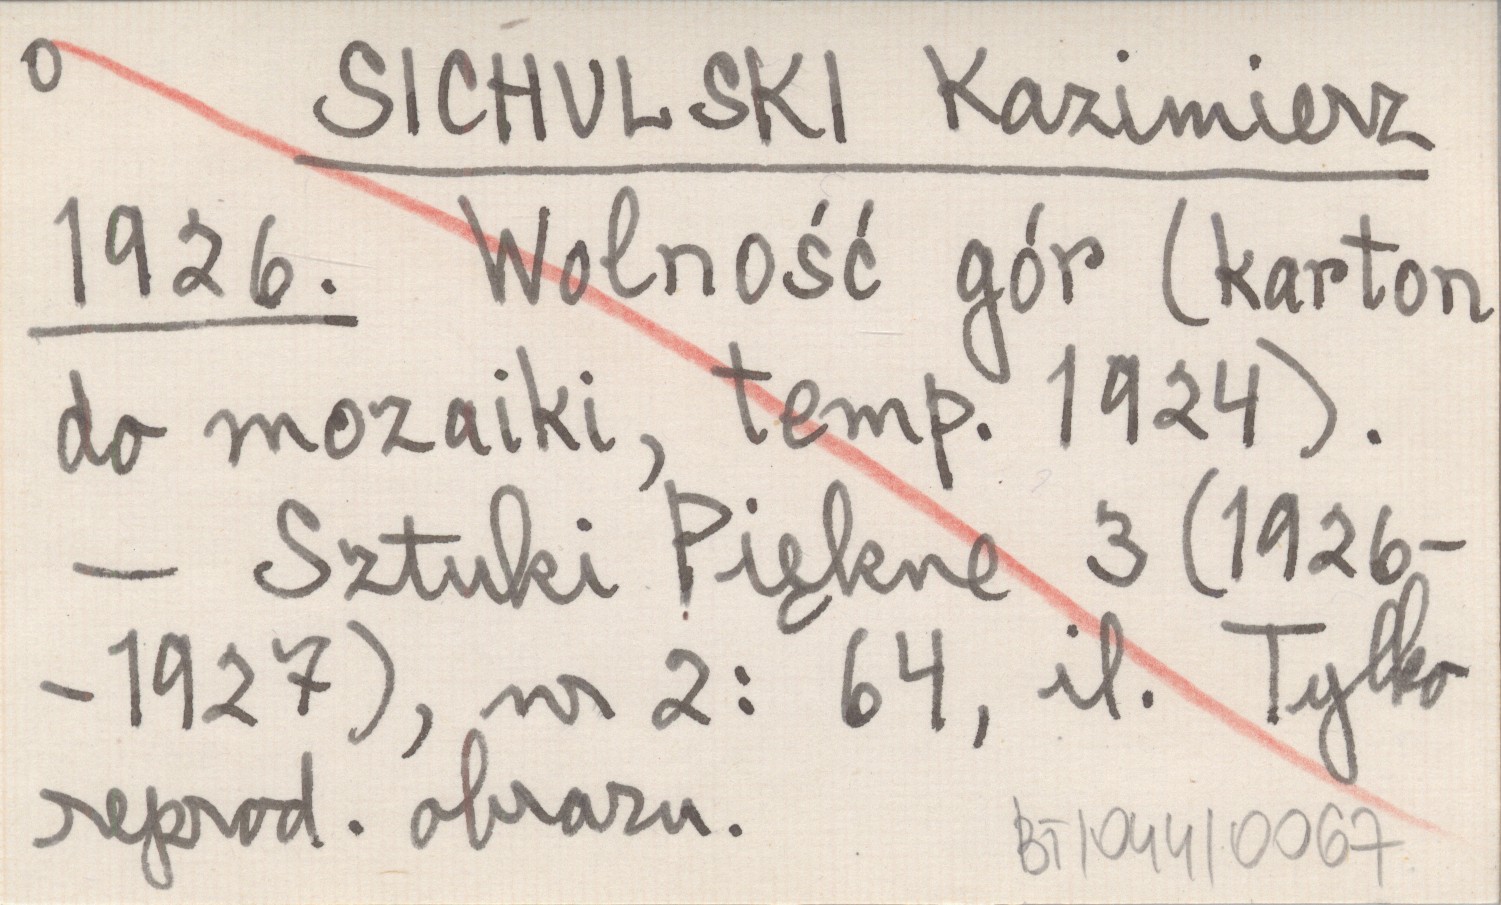 0 SICHULSKI Kazimierz
1926. Wolność gór (karton
do mozaiki, temp. 1924).
— Sztuki Piękne 3 (1926-
-1927), nr 2: 64, il. Tylko
reprod. obrazu.
BT/044/0067